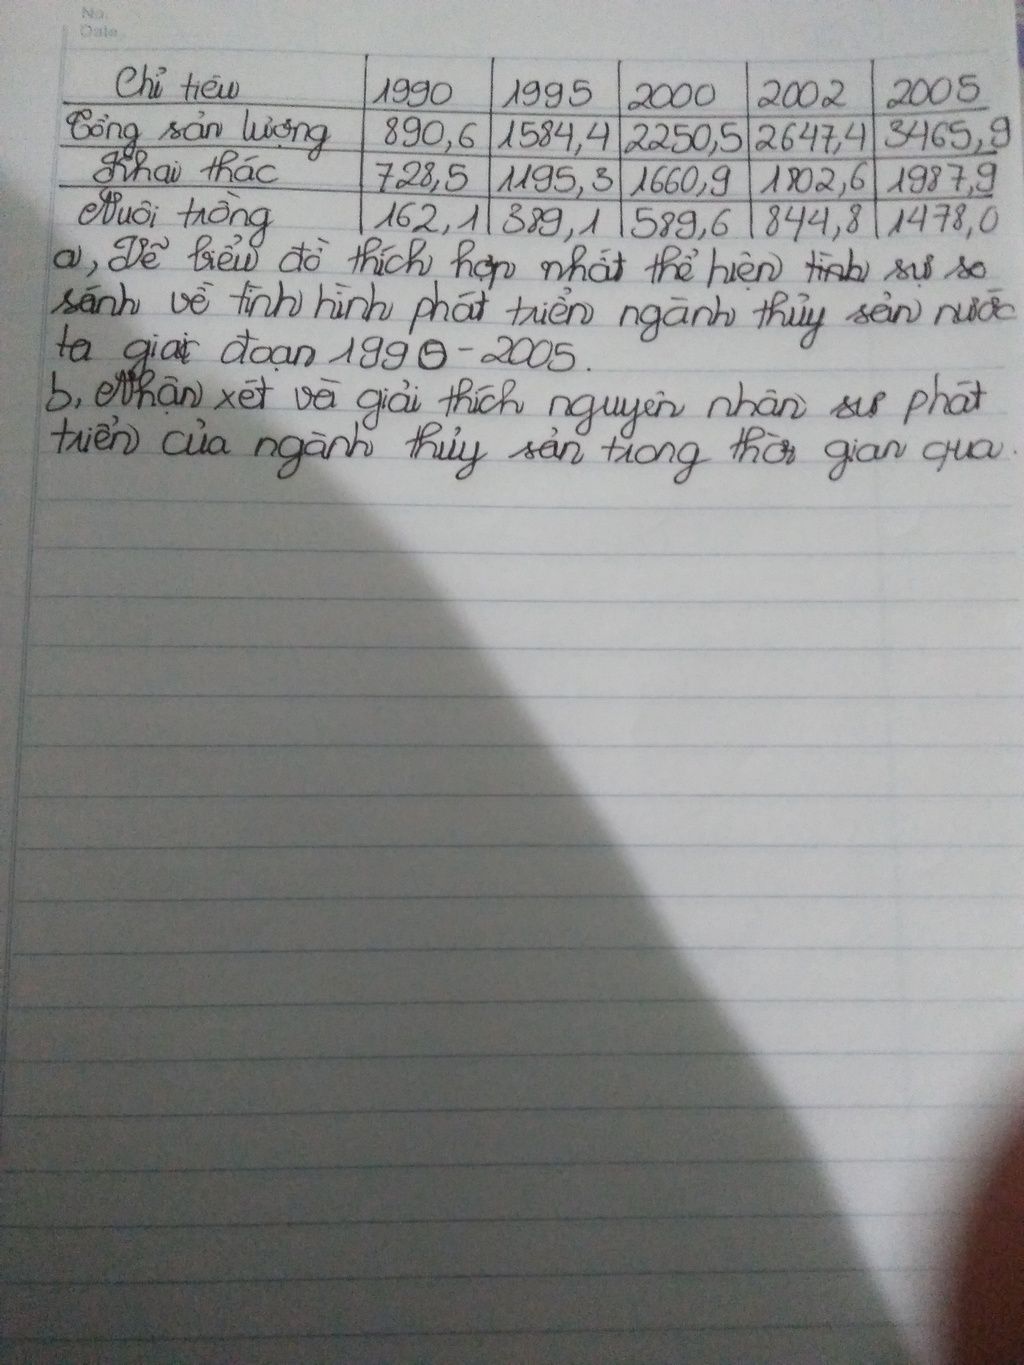 No.
Date
Chỉ tiêu 1990 1995 2000 2002 2005
Tổng sản lượng 890,6 1584,4 2250,5 2647,4 3465,9
Khai thác 728,5 1195,3 1660,9 1802,6 1987,9
Nuôi trồng 162,1 389,1 589,6 844,8 1478,0
a, Vẽ biểu đồ thích hợp nhất thể hiện tình sự so
sánh về tình hình phát triển ngành thủy sản nước
ta giai đoạn 1990-2005.
b, Nhận xét và giải thích nguyên nhân sự phát
triển của ngành thủy sản trong thời gian qua.